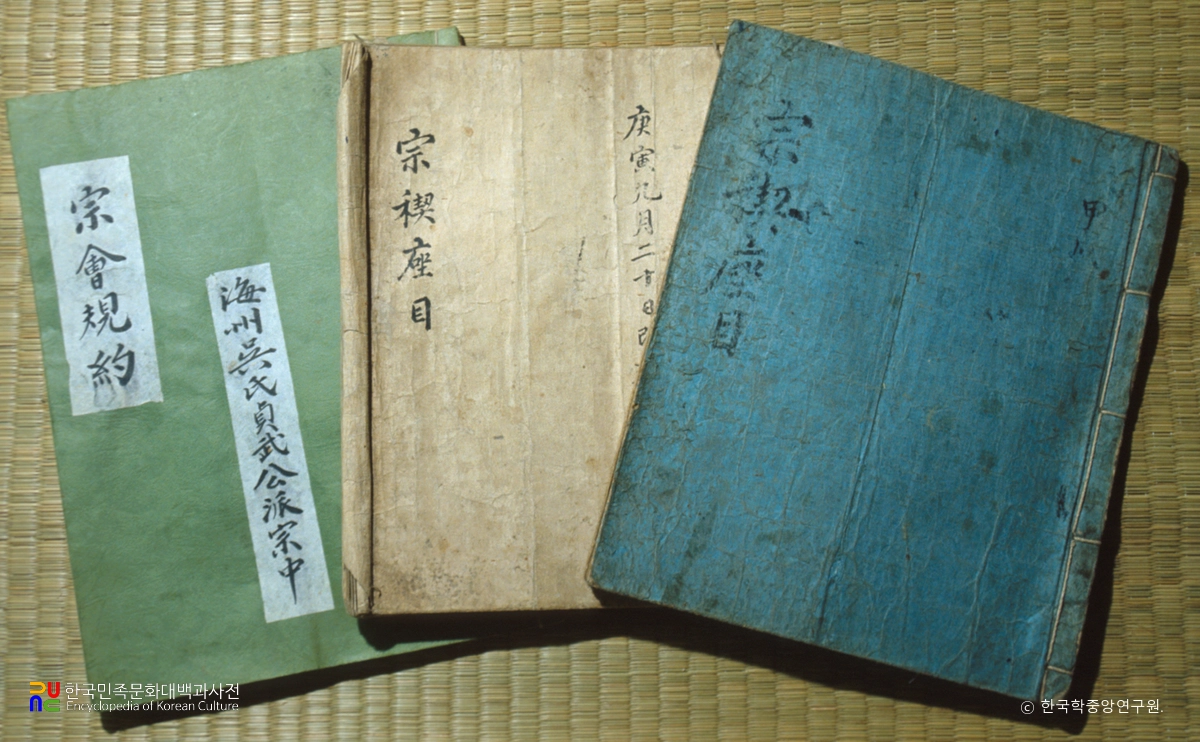 宗會規約
海州吳氏貞武公派宗中
宗稧座目
庚寅九月二十日
宗稧座目
甲
한국민족문화대백과사전
Encyclopedia of Korean Culture
ⓒ 한국학중앙연구원.